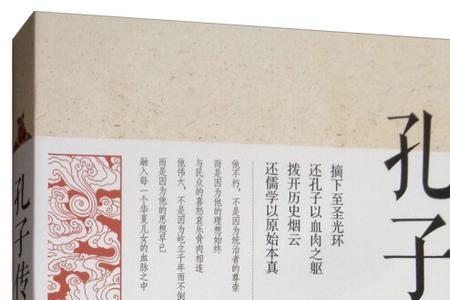 孔子
摘下至圣光环
还孔子以血肉之躯
拨开历史烟云
还儒学以原始本真
他不朽，不是因为统治者的尊崇
而是因为他的理想始终
与民众的喜怒哀乐骨肉相连
他伟大，不是因为屹立千年而不倒
而是因为他的思想早已
融入每一个华夏儿女的血脉之中
孔子传